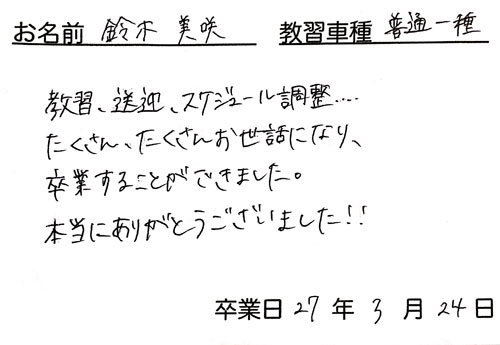 お名前 鈴木 美咲 教習車種 普通一種
教習、送迎、スケジュール調整....
たくさん、たくさんお世話になり、
卒業することができました。
本当にありがとうございました!!
卒業日 27 年 3 月 24 日